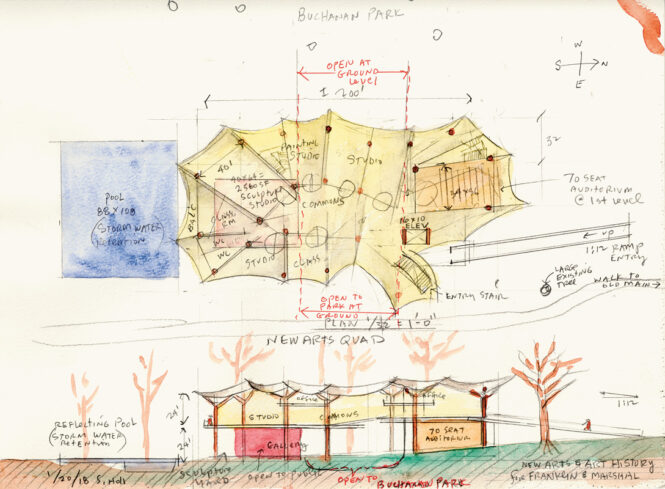 BUCHANAN PARK
OPEN AT
GROUND
level
± 200'
W
S
N
E
32
PAINTING
STUDIO
STUDIO
40'
SCULPTURE
STUDIO
COMMONS
34x56
70 SEAT
AUDITORIUM
@ 1st level
POOL
88 x 100
STORM WATER
RETENTION
CLASS
RM
WC
WC
STUDIO
CLASS
10x10
ELEV
UP
1:12 RAMP
ENTRY
LARGE
EXISTING
TREE
WALK TO
OLD MAIN
ENTRY STAIR
OPEN TO
PARK AT
GROUND
PLAN 1/32 = 1'-0"
NEW ARTS QUAD
OFFICE
STUDIO
COMMONS
24'
24'
GALLERY
70 SEAT
AUDITORIUM
1:12
REFLECTING POOL
STORM WATER
RETENTION
1/20/16 S. Holl
SCULPTURE
YARD
OPEN TO PUBLIC
OPEN TO BUCHANAN PARK
NEW ARTS & ART HISTORY
for FRANKLIN & MARSHAL